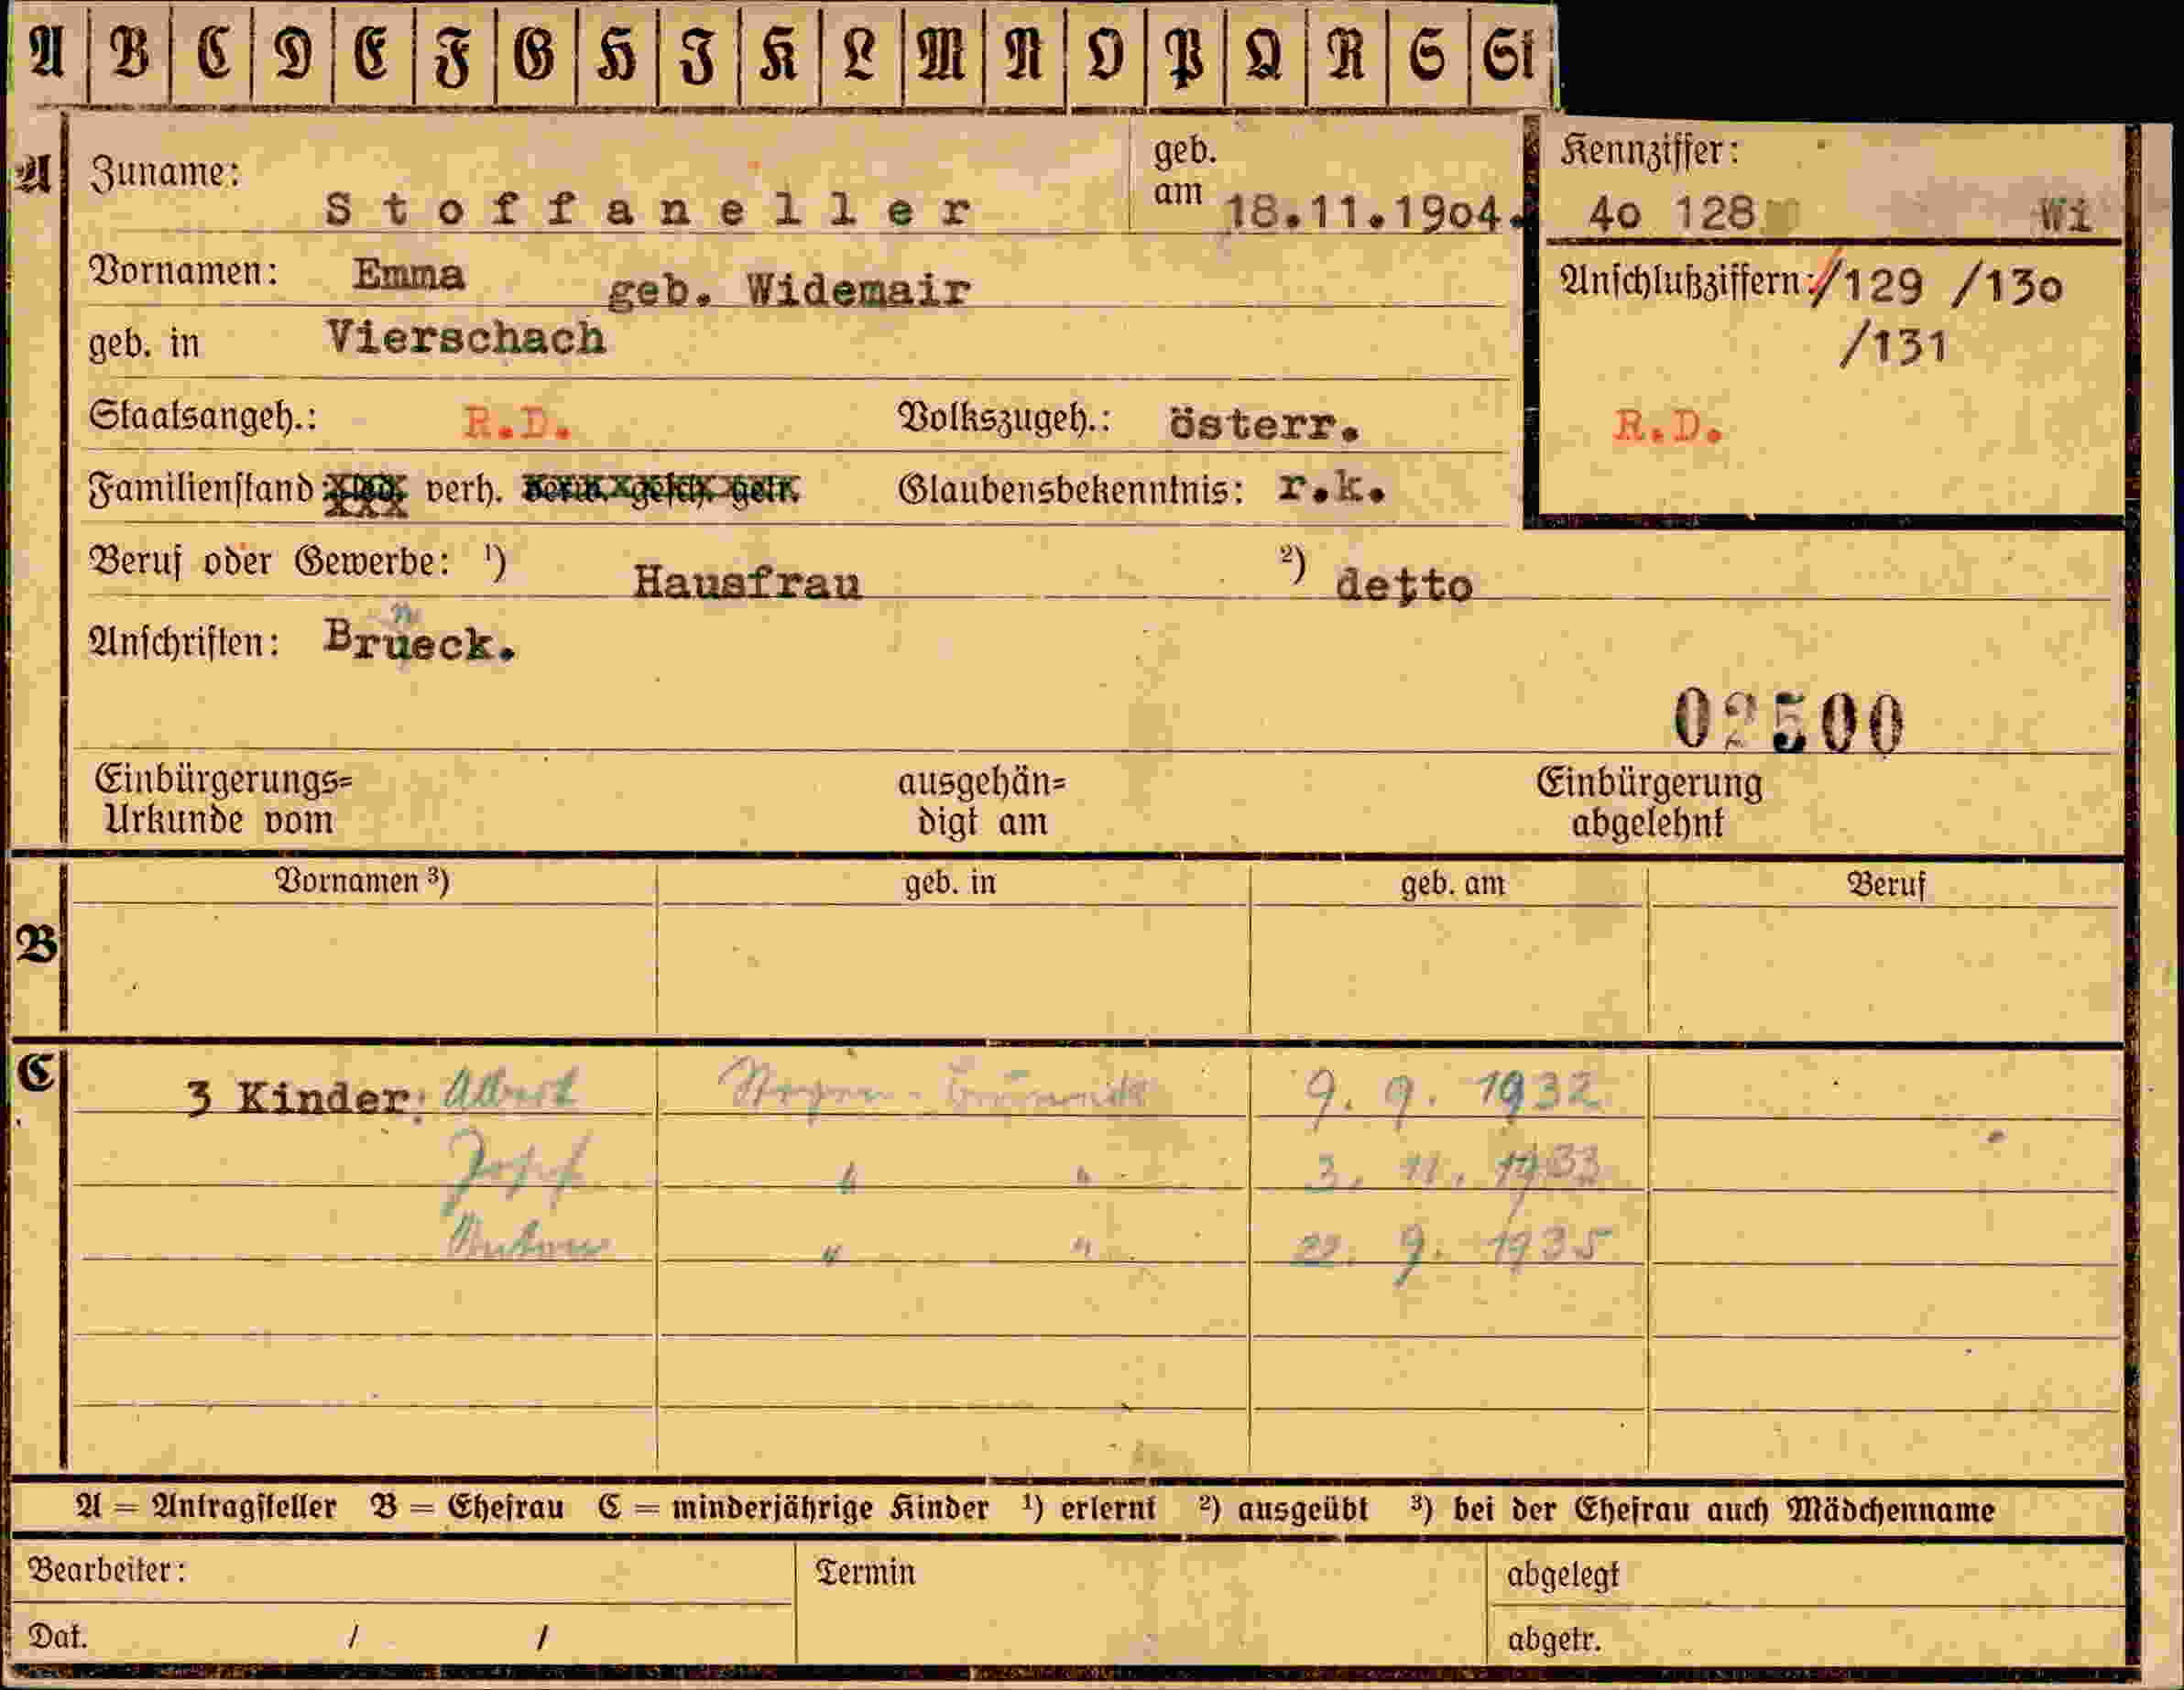 A B C D E F G H I K L M N O P Q R S St
A Zuname: Stoffaneller geb. am 18.11.1904. Kennziffer: 40 128 Wi
Vornamen: Emma geb. Widemair Anschlußziffern: /129 /130
/131
geb. in Vierschach
Staatsangeh.: R.D. Volkszugeh.: österr. R.D.
Familienstand led. verh. verw. gesch. getr. Glaubensbekenntnis: r.k.
Beruf oder Gewerbe: ¹) Hausfrau ²) detto
Anschriften: Brueck.
02500
Einbürgerungs= ausgehän= Einbürgerung
Urkunde vom digt am abgelehnt
Vornamen ³) geb. in geb. am Beruf
B
C 3 Kinder: Albert 9. 9. 1932
Josef " " 3. 11. 1933
" " 22. 9. 1935
A = Antragsteller B = Ehefrau C = minderjährige Kinder ¹) erlernt ²) ausgeübt ³) bei der Ehefrau auch Mädchenname
Bearbeiter: Termin abgelegt
Dat. / / abgetr.